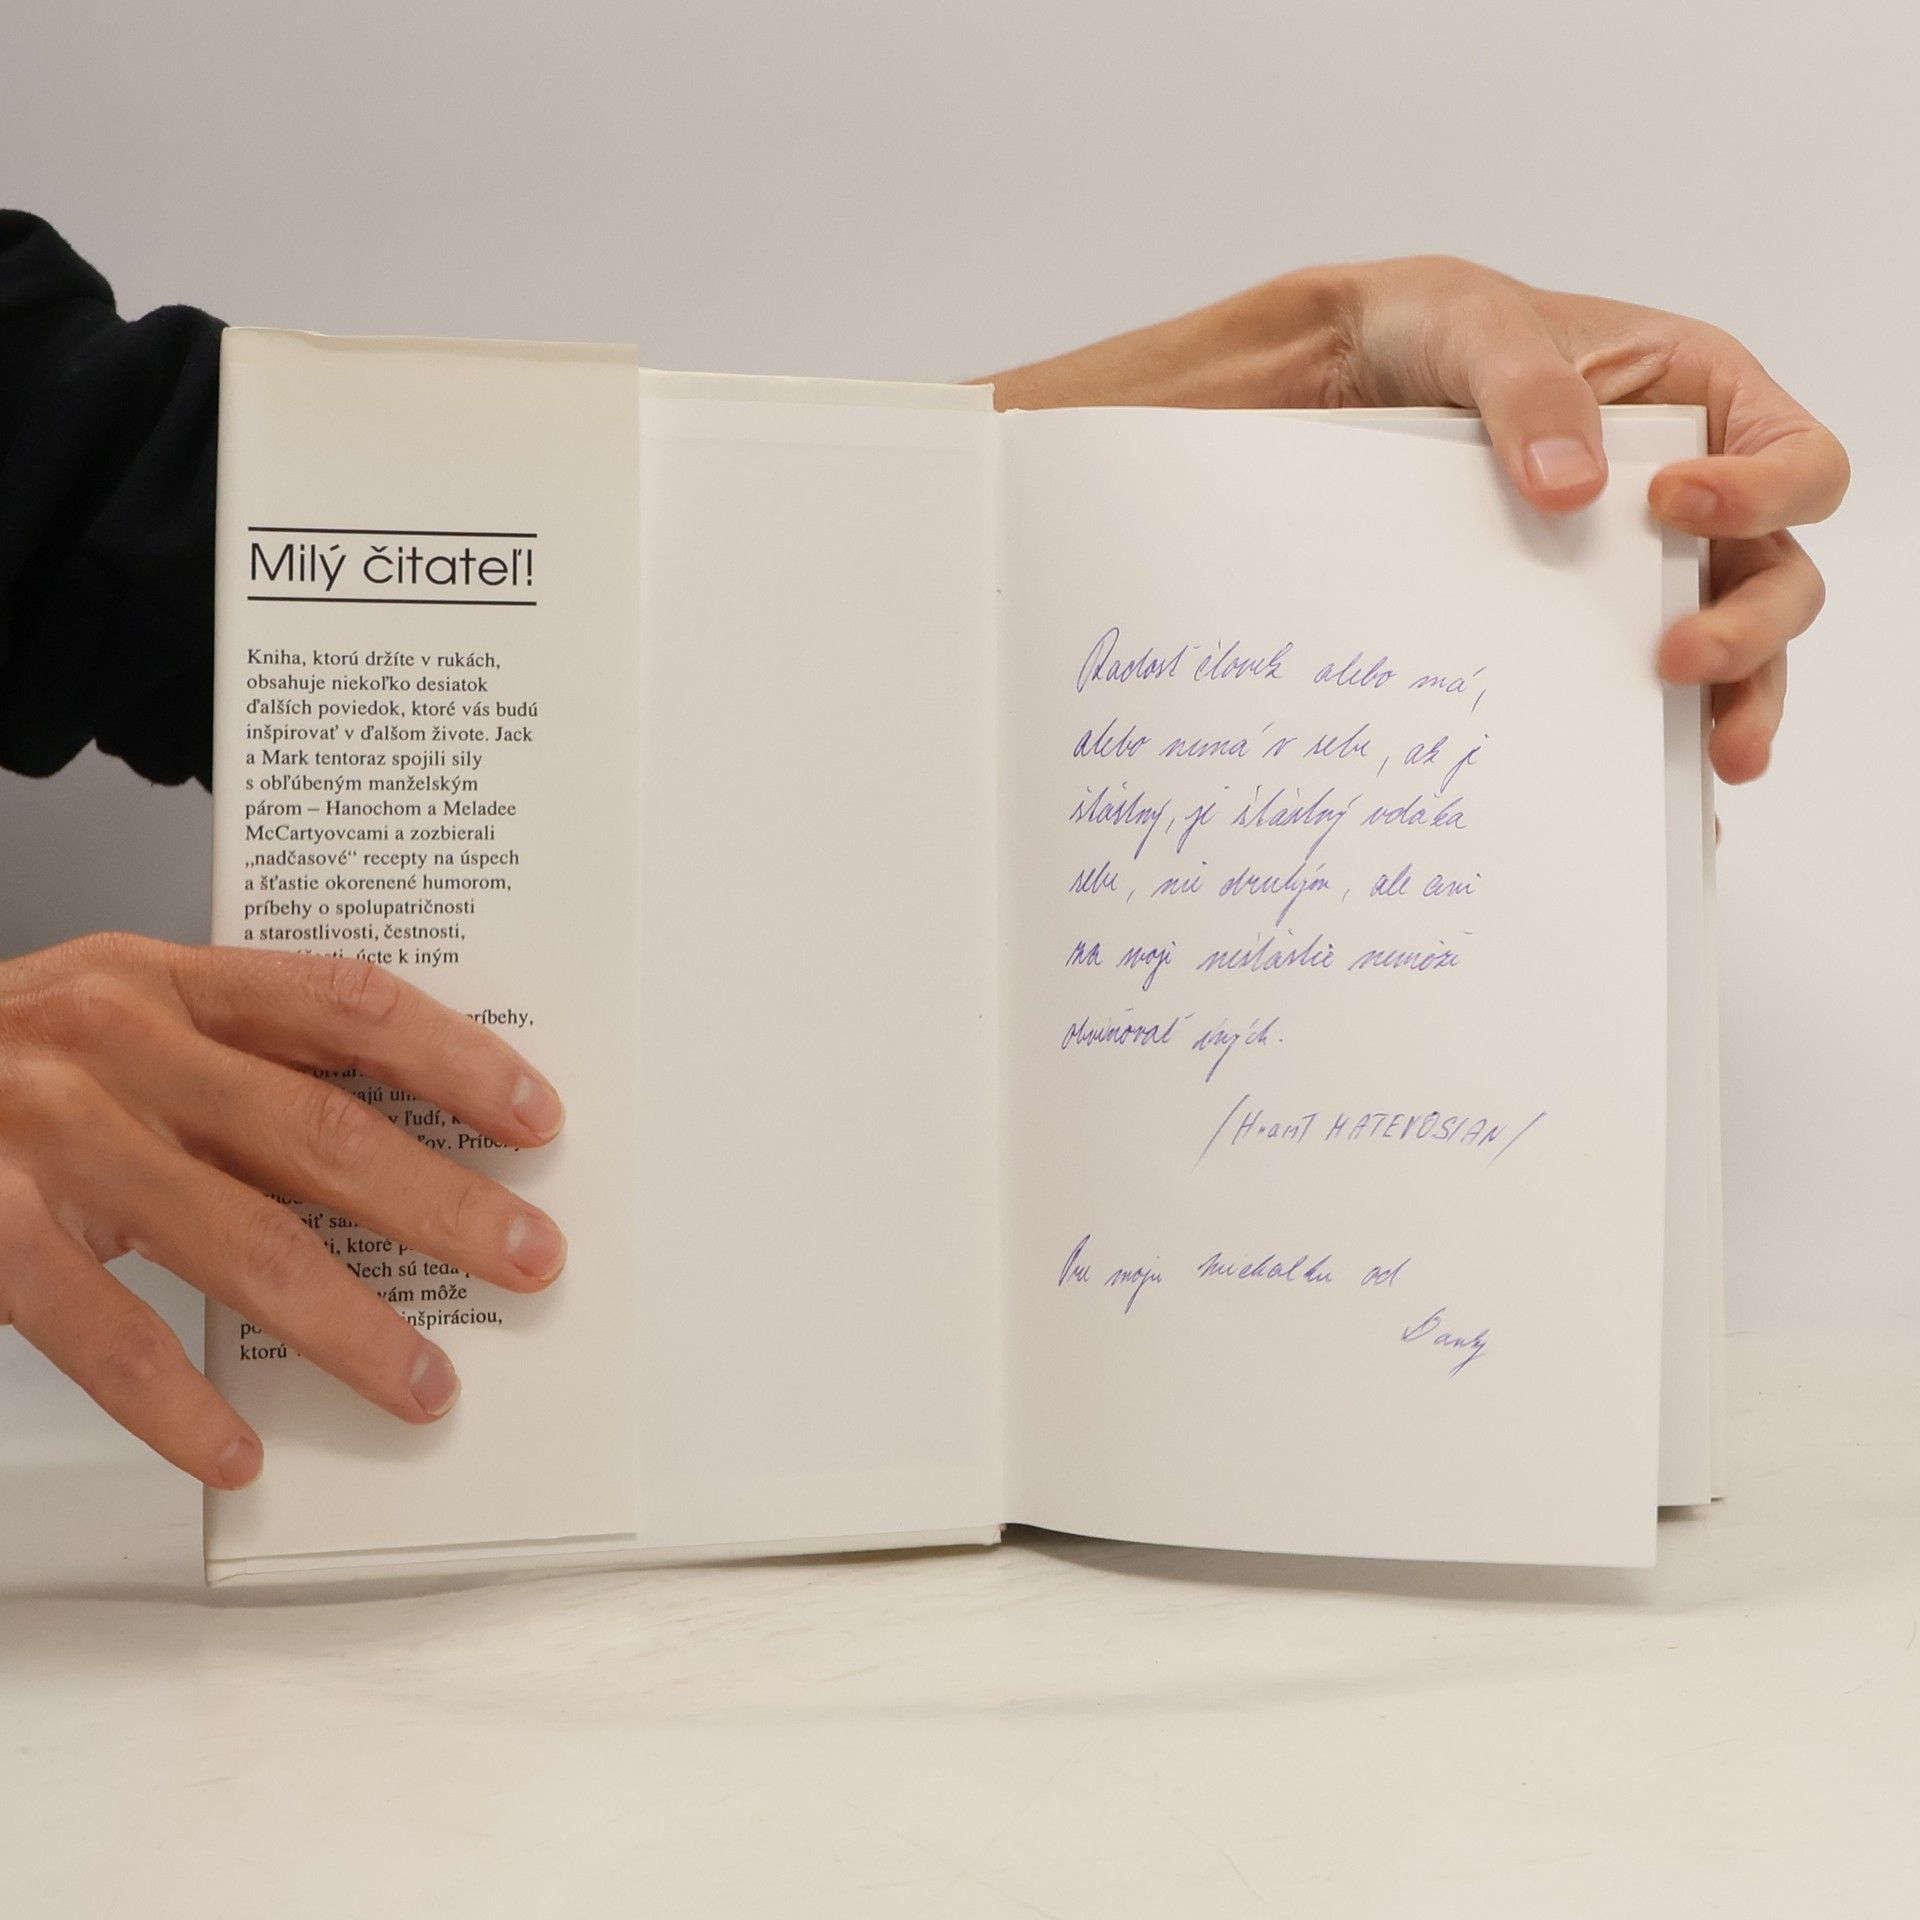 Milý čitateľ!
Kniha, ktorú držíte v rukách,
obsahuje niekoľko desiatok
ďalších poviedok, ktoré vás budú
inšpirovať v ďalšom živote. Jack
a Mark tentoraz spojili sily
s obľúbeným manželským
párom – Hanochom a Meladee
McCartyovcami a zozbierali
„nadčasové“ recepty na úspech
a šťastie okorenené humorom,
príbehy o spolupatričnosti
a starostlivosti, čestnosti,
úcte k iným
ľudí,
ktoré
Nech sú teda
vám môže
inšpiráciou,
ktorú
Radosť človek alebo má,
alebo nemá v sebe, ak je
šťastný, je šťastný vďaka
sebe, nie druhým, ale ani
za svoje nešťastie nemôže
obviňovať iných.
/Hrant MATEVOSIAN/
Pre moju Michalku od
Danky